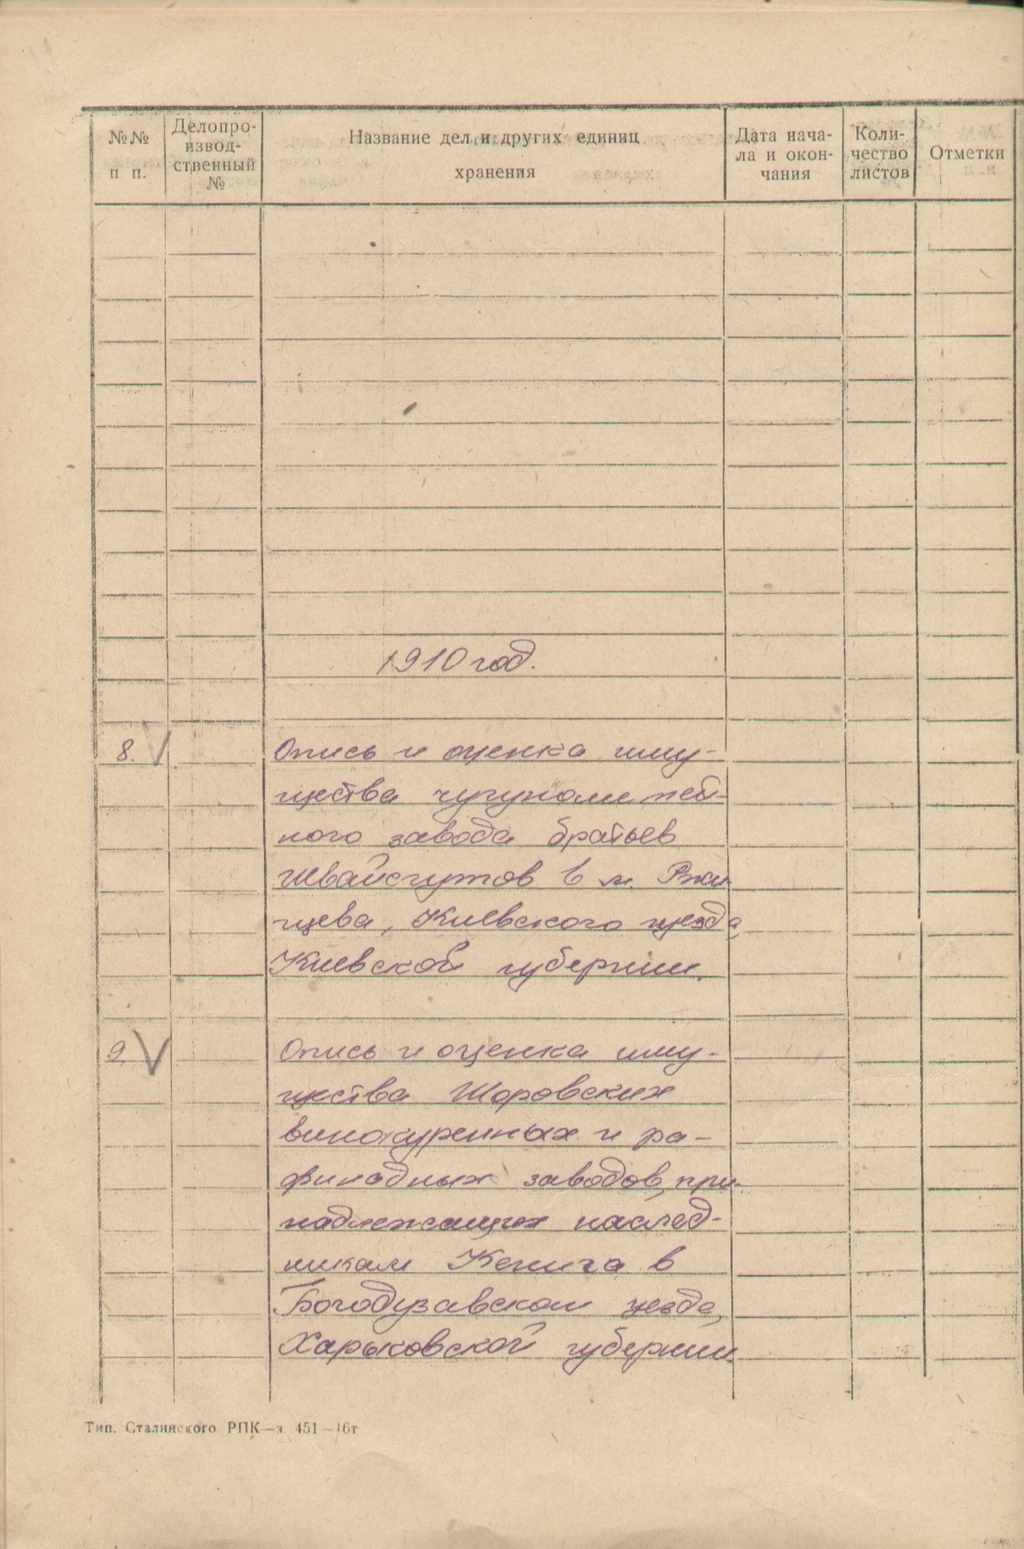 №№ п п.
Делопро-
извод-
ственный
№
Название дел и других единиц
хранения
Дата нача-
ла и окон-
чания
Коли-
чество
листов
Отметки
1910 год.
8. V Опись и оценка иму-
щества чугунолитей-
ного завода братьев
Швайсгутов в м. Ржи-
щева, Киевского уезда
Киевской губернии.
9 V Опись и оценка иму-
щества Шаровских
винокуренных и ра-
финадных заводов, при-
надлежащих наслед-
никам Кенига в
Богодухавском уезде,
Харьковской губернии.
Тип. Сталинского РПК—з 451—16т